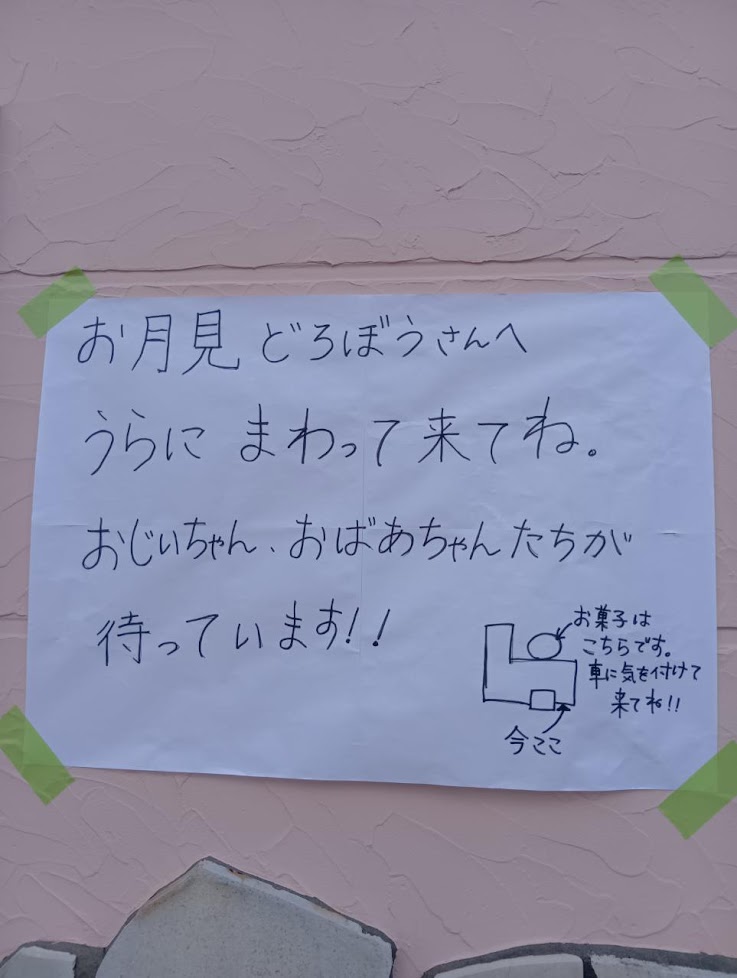 お月見 どろぼうさんへ
うらに まわって来てね。
おじいちゃん、おばあちゃんたちが
待っています!!
お菓子は
こちらです。
車に気を付けて
来てね!!
今ここ